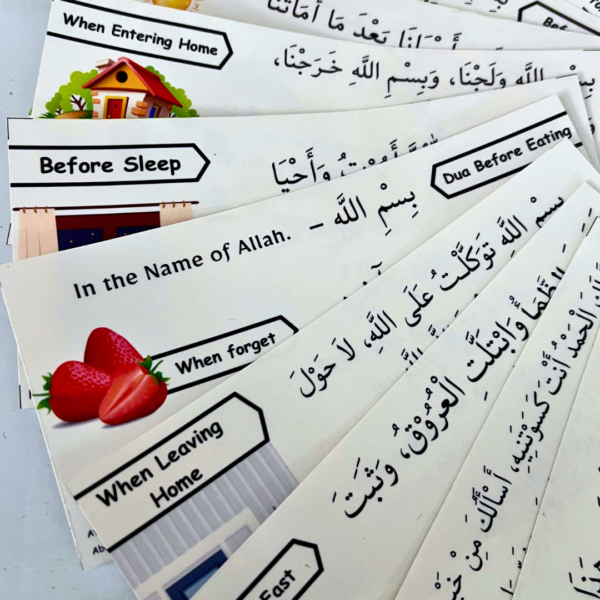 بَعْدَ مَا أَمَاتَنَا
When Entering Home
بِسْمِ اللَّهِ وَلَجْنَا، وَبِسْمِ اللَّهِ خَرَجْنَا،
Before Sleep
وَأَحْيَا
Dua Before Eating
بِسْمِ اللَّه –
In the Name of Allah.
When forget
بِسْمِ اللَّهِ تَوَكَّلْتُ عَلَى اللَّهِ، لاَ حَوْلَ
When Leaving
Home
الظَّمَأُ وَابْتَلَّتِ الْعُرُوْقُ، وَثَبَتَ
الْحَمْدُ أَنْتَ كَسَوْتَنِيهِ، أَسْأَلُكَ مِنْ